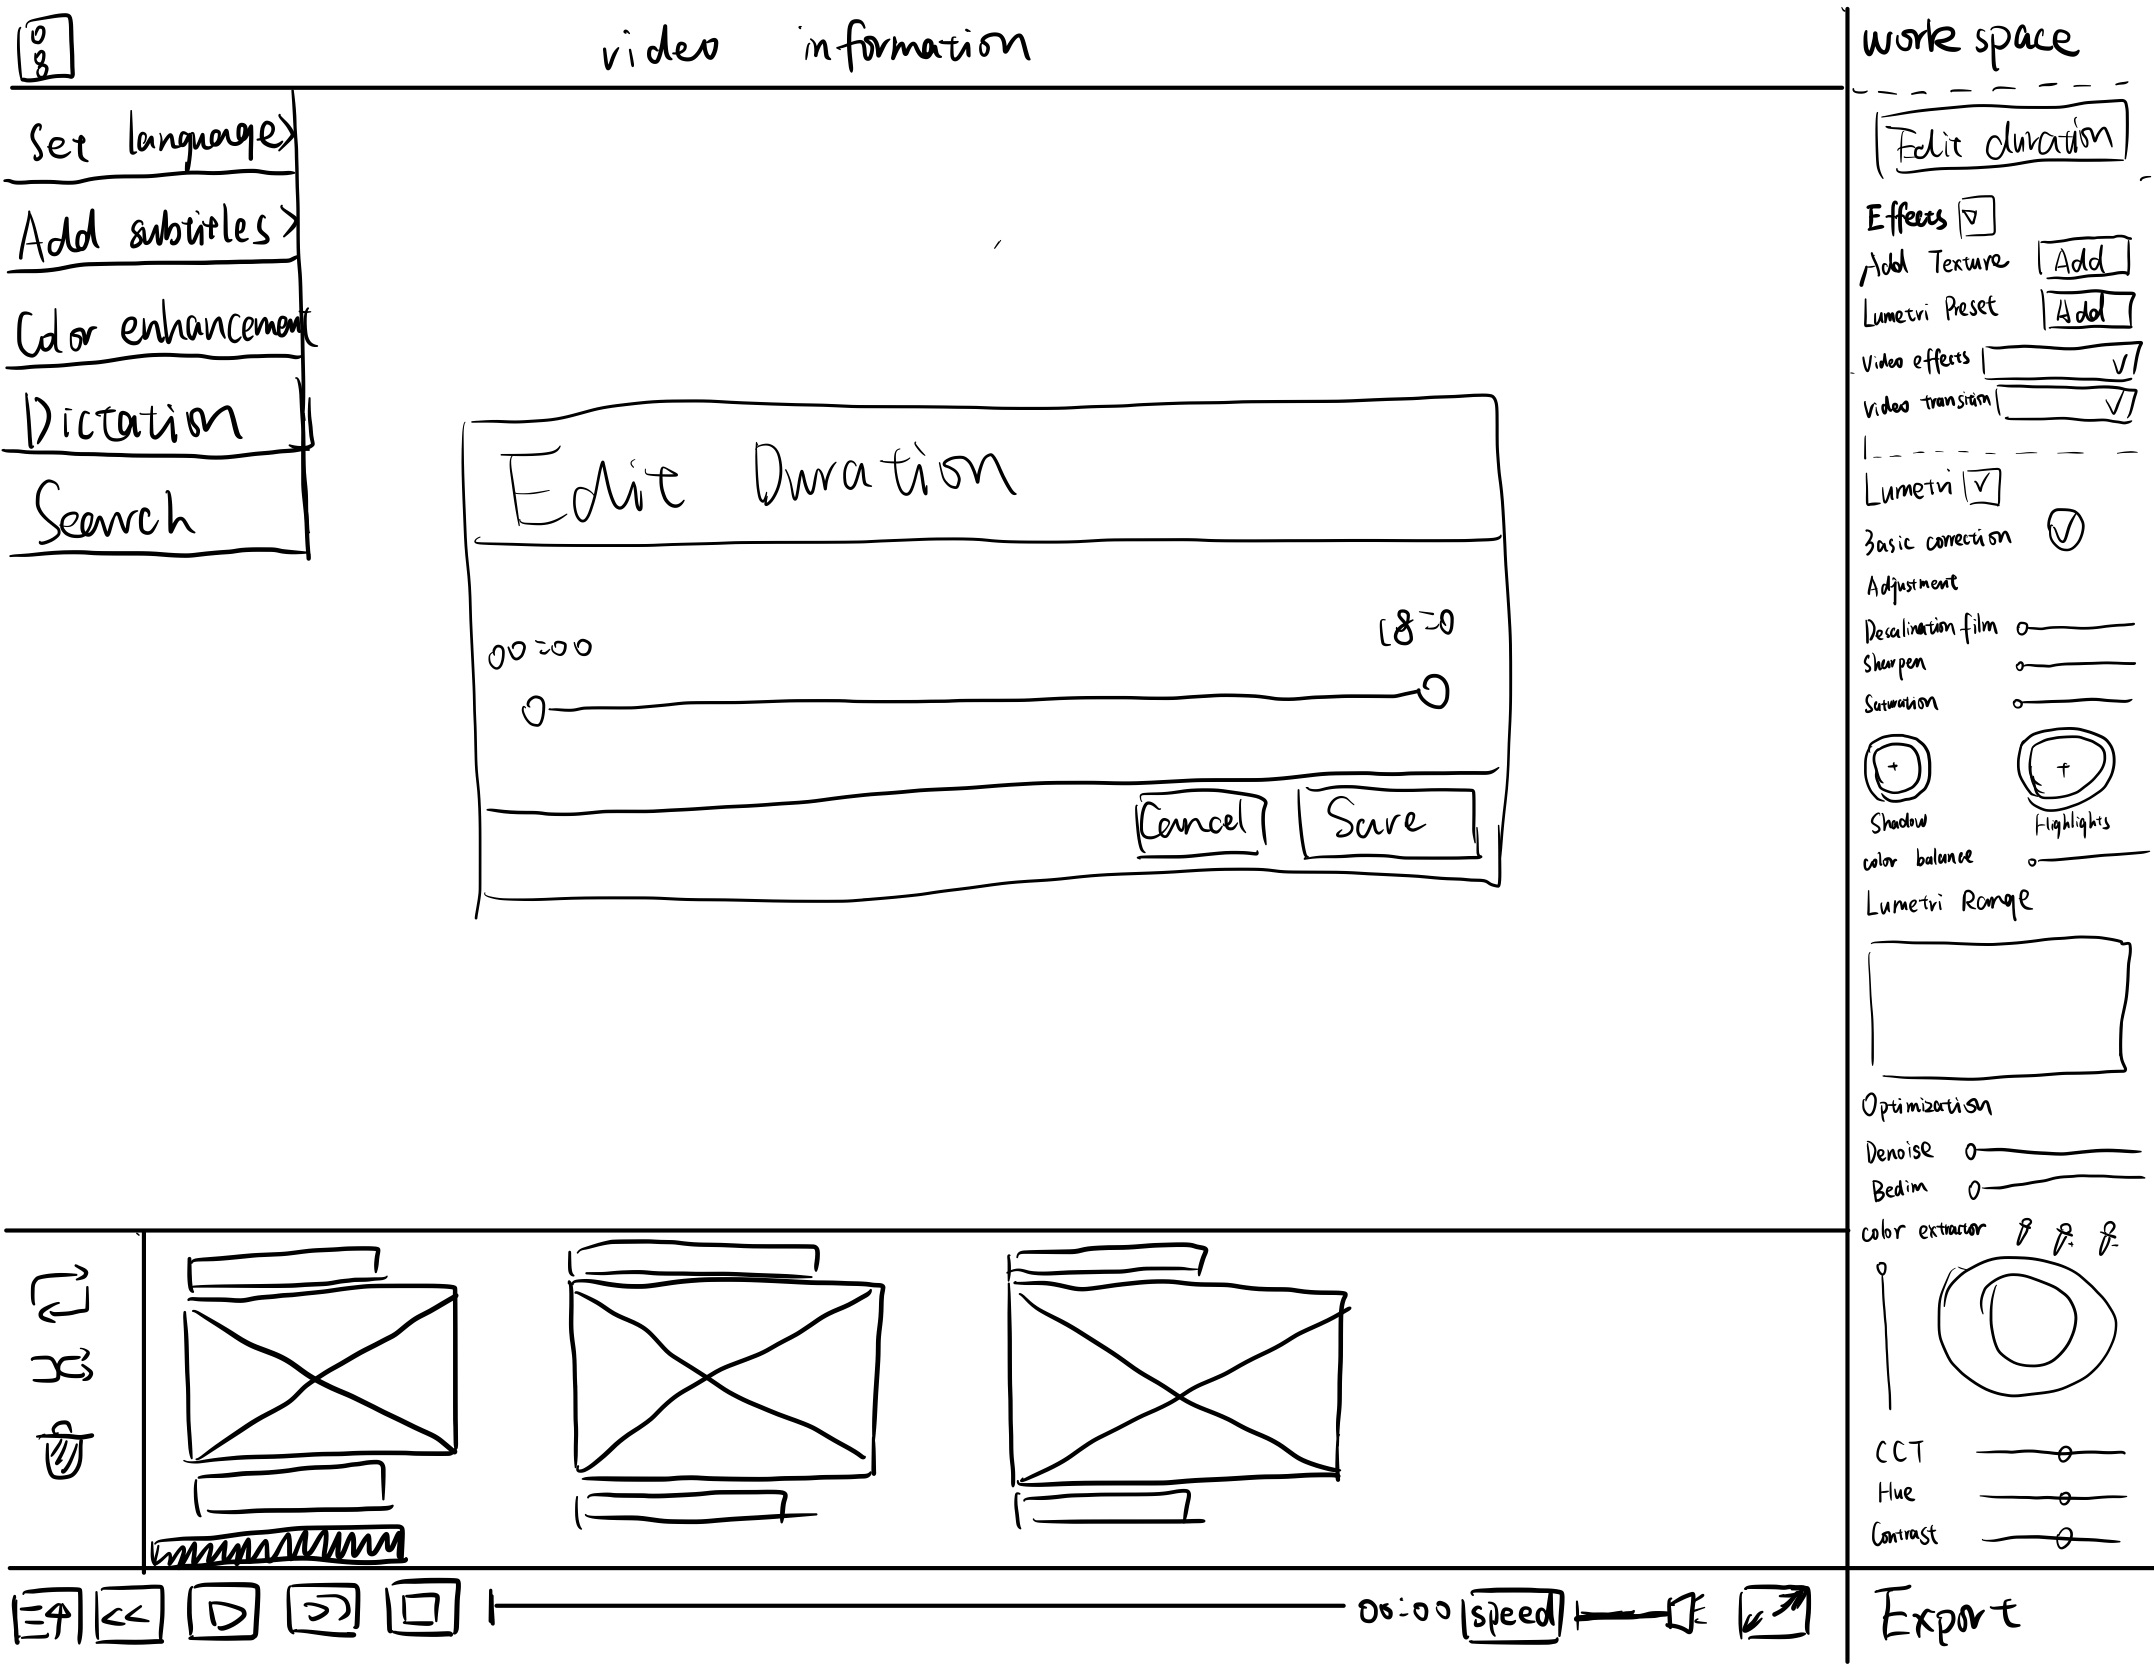 video information
Set language >
Add subtitles >
Color enhancement
Dictation
Search
Edit Duration
00:00
18:0
Cancel
Save
work space
Edit duration
Effects
Add Texture Add
Lumetri Preset Add
video effects
video transition
Lumetri
Basic correction
Adjustment
Desalination film
Sharpen
Saturation
Shadow Highlights
color balance
Lumetri Range
Optimization
Denoise
Bedim
color extractor
CCT
Hue
Contrast
<< 00:00 speed
Export